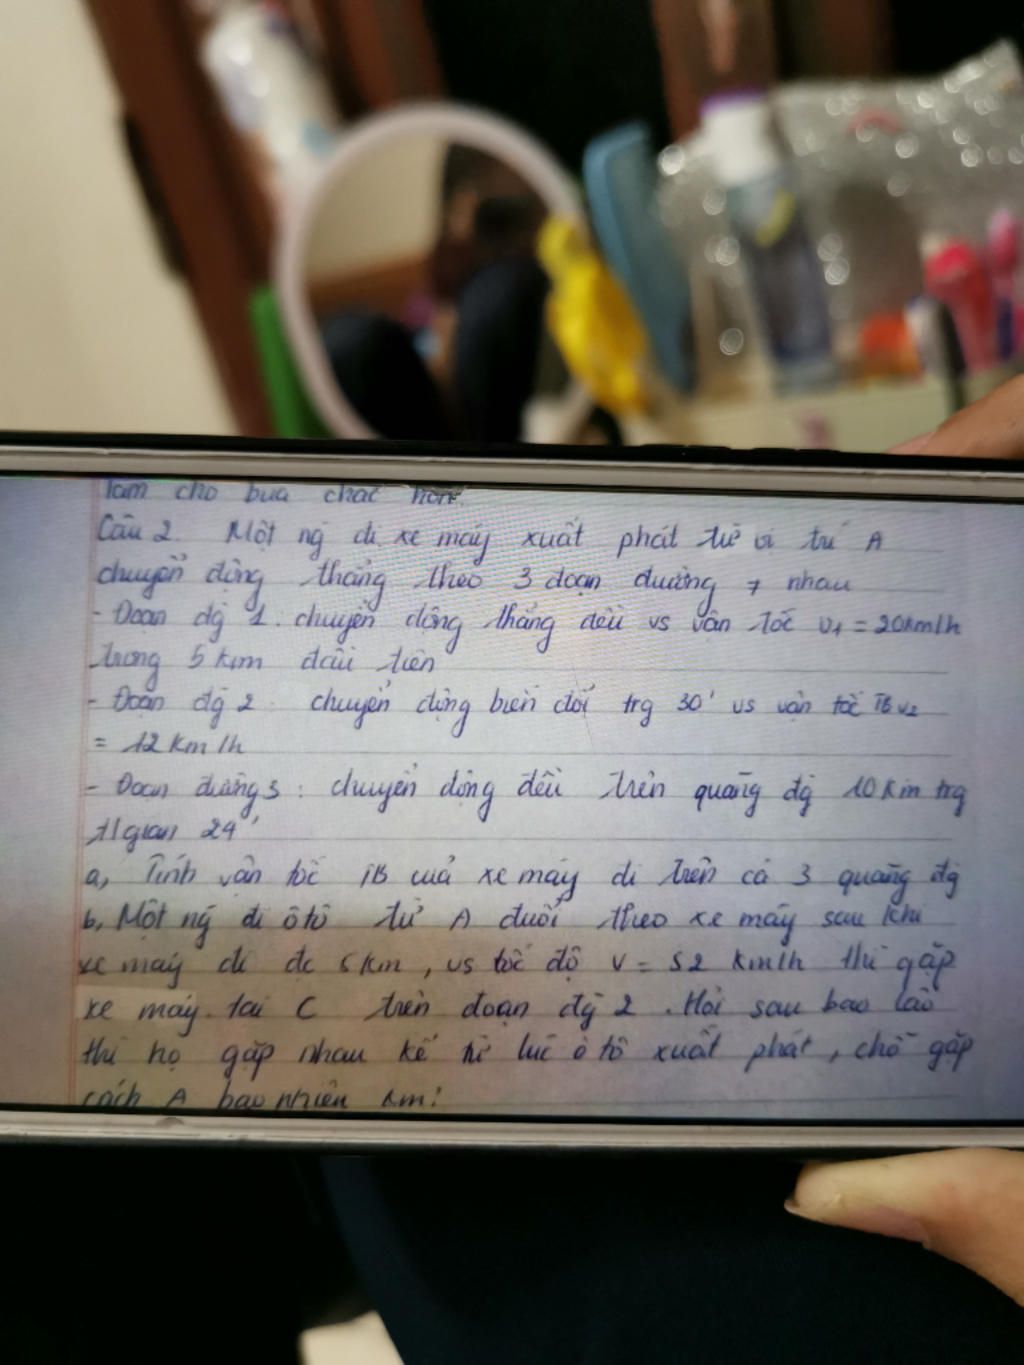 làm cho búa chắc hơn.
Câu 2. Một ng đi xe máy xuất phát từ vị trí A
chuyển động thẳng theo 3 đoạn đường ≠ nhau
- Đoạn đg 1. chuyển động thẳng đều vs vân tốc v1 = 20km/h
trong 5 km đầu tiên
- Đoạn đg 2. chuyển động biến đổi trg 30' vs vận tốc TB v2
= 12 km/h
- Đoạn đường 3: chuyển động đều trên quãng đg 10 km trg
t/gian 24'
a, Tính vân tốc TB của xe máy đi trên cả 3 quãng đg
b, Một ng đi ôtô từ A đuổi theo xe máy sau khi
xe máy đi đc 5 km, vs tốc độ v = 52 km/h thì gặp
xe máy tại C trên đoạn đg 2. Hỏi sau bao lâu
thì họ gặp nhau kể từ lúc ô tô xuất phát, chỗ gặp
cách A bao nhiêu km?